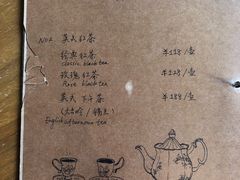 No.2 英式红茶
经典红茶 ¥118/壶
classic black tea
玫瑰红茶 ¥128/壶
Rose black tea
英式下午茶 ¥188/壶
English afternoon tea